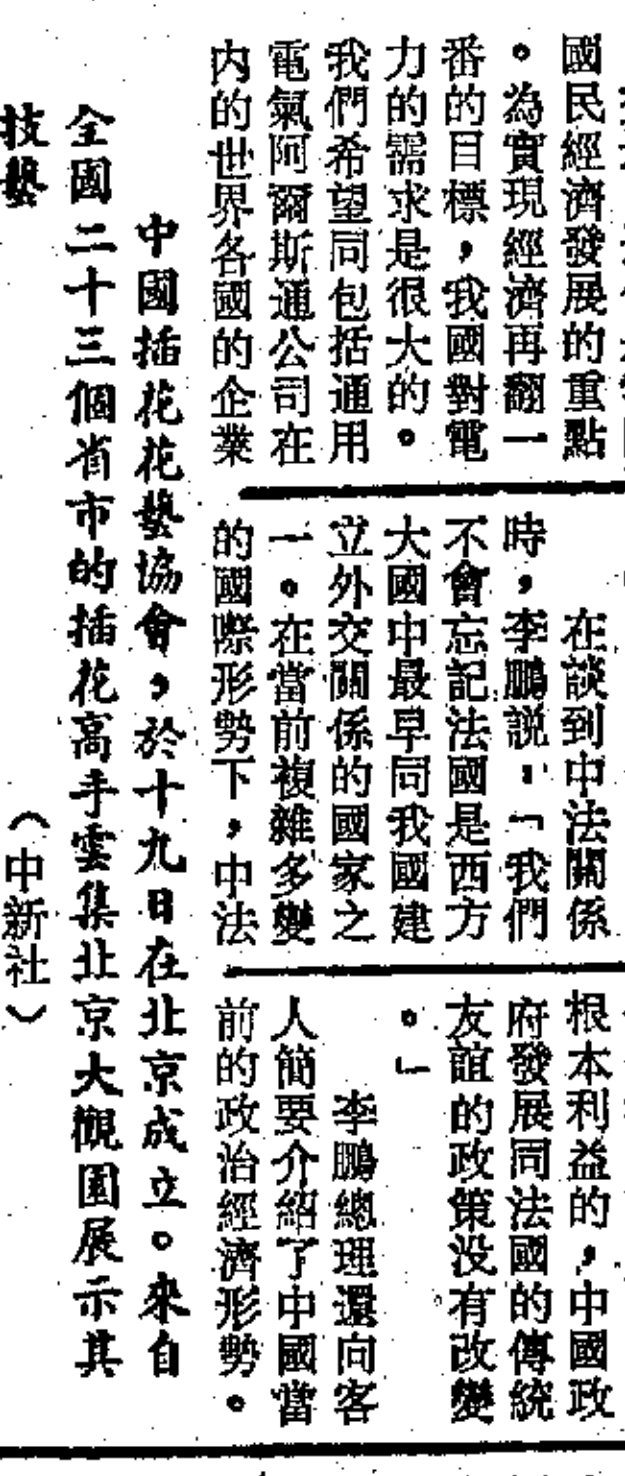 國民經濟發展的重點
。為實現經濟再翻一
番的目標，我國對電
力的需求是很大的。
我們希望同包括通用
電氣阿爾斯通公司在
内的世界各國的企業
在談到中法關係
時，李鵬説：「我們
不會忘記法國是西方
大國中最早同我國建
立外交關係的國家之
一。在當前複雜多變
的國際形勢下，中法
根本利益的，中國政
府發展同法國的傳統
友誼的政策没有改變
。」
李鵬總理還向客
人簡要介紹了中國當
前的政治經濟形勢。
中國插花花藝協會，於十九日在北京成立。來自
全國二十三個省市的插花高手雲集北京大觀園展示其
技藝
（中新社）